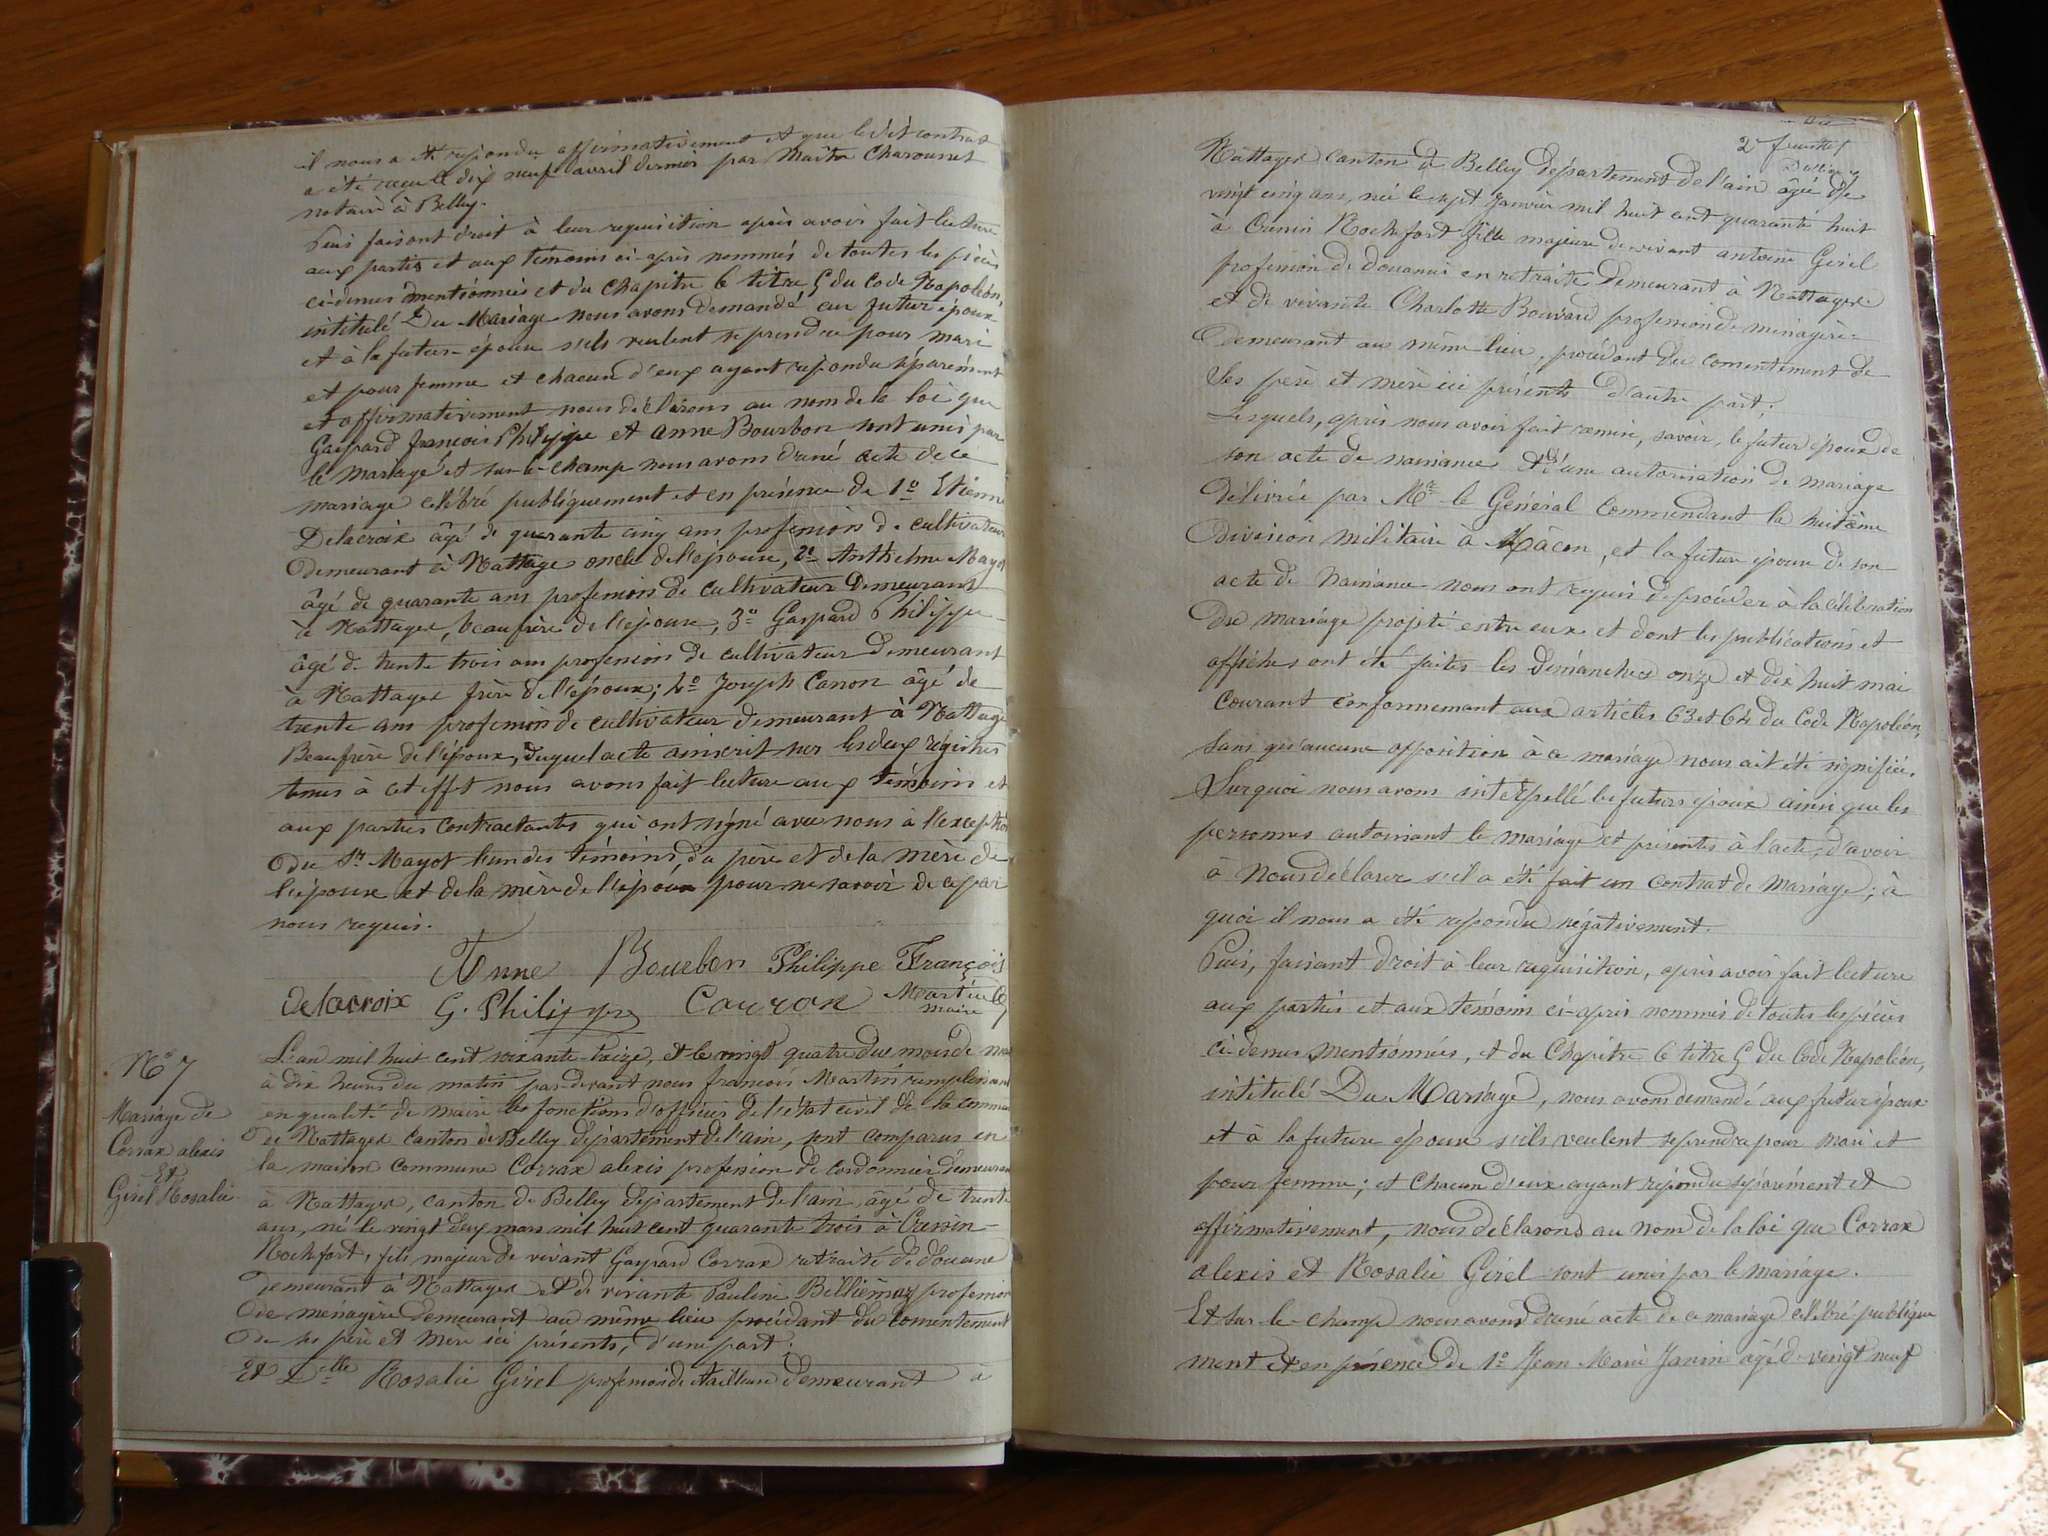 il nous a été repondu affirmativement et que le dit contrat
a été reçu le dix neuf avril dernier par Maître Charounet
notaire à Belley.
Puis faisant droit à leur requisition après avoir fait lecture
aux parties et aux témoins ci-après nommés de toutes les pièces
ci-dessus mentionnées et du chapitre 6 titre 5 du Code Napoléon,
intitulé Du Mariage nous avons demandé au futur époux
et à la future épouse s'ils veulent se prendre pour mari
et pour femme et chacun d'eux ayant repondu séparément
et affirmativement nous déclarons au nom de la loi que
Gaspard françois Philippe et Anne Bourbon sont unis par
le mariage et sur-le-champ nous avons dressé acte de ce
mariage célébré publiquement et en présence de 1º Etienne
Delacroix âgé de quarante cinq ans profession de cultivateur
demeurant à Nattages oncle de l'épouse, 2º Anthelme Mayot
âgé de quarante ans profession de cultivateur demeurant
à Nattages, beaufrère de l'épouse, 3º Gaspard Philippe
âgé de trente trois ans profession de cultivateur demeurant
à Nattages frère de l'époux; 4º Joseph Carron âgé de
trente ans profession de cultivateur demeurant à Nattages
Beaufrère de l'époux, duquel acte ainscrit sur les deux régistres
tenus à cet effet nous avons fait lecture aux témoins et
aux parties contractantes qui ont signé avec nous à l'exception
du Sr Mayot l'un des témoins, du père et de la mère de
l'époux et de la mère de l'épouse pour ne savoir de ce par
nous requis.
Anne Bourbon Philippe François
delacroix G. Philippe Carron Martin
maire
Nº 7
Mariage de
Corrax alexis
Et
Girel Rosalie
L'an mil huit cent soixante-treize, et le vingt quatre du mois de mai
à dix heures du matin pardevant nous françois Martin remplissant
en qualité de maire les fonctions d'officier de l'état civil de la commune
de Nattages Canton de Belley département de l'ain, sont comparus en
la maison commune Corrax alexis profession de cordonnier demeurant
à Nattages, canton de Belley département de l'ain, âgé de trente
ans, né le vingt deux mars mil huit cent quarante trois à Cressin
Rochefort, fils majeur de vivant Gaspard Corrax retraité de douane
demeurant à Nattages et de vivante Pauline Billiémaz profession
de ménagère demeurant au même lieu procédant du consentement
de ses père et mère ici présents, d'une part;
Et Delle Rosalie Girel profession de tailleuse demeurant à
2e feuillet
Nattages canton de Belley département de l'ain âgée de
vingt cinq ans, née le sept Janvier mil huit cent quarante huit
à Cressin Rochefort fille majeure de vivant antoine Girel
profession de douanier en retraite demeurant à Nattages
et de vivante Charlotte Bouvard profession de ménagère
demeurant au même lieu, procédant du consentement de
Ses père et mère ici présents d'autre part;
Lesquels, après nous avoir fait remise, savoir, le futur époux de
son acte de naissance et d'une autorisation de mariage
délivrée par Mr le Général Commandant la huitième
division militaire à Mâcon, et la future épouse de son
acte de naissance nous ont requis de procéder à la célébration
du mariage projeté entre eux et dont les publications et
affiches ont été faites les dimanches onze et dix huit mai
courant conformemant aux articles 63 et 64 du Code Napoléon,
Sans qu'aucune opposition à ce mariage nous ait été signifiée.
Surquoi nous avons interpellé les futurs époux ainsi que les
personnes autorisant le mariage et présentes à l'acte, d'avoir
à Nous déclarer s'il a été fait un contrat de mariage; à
quoi il nous a été repondu négativement.
Puis, faisant droit à leur requisition, après avoir fait lecture
aux parties et aux témoins ci-après nommés de toutes les pièces
ci-dessus mentionnées, et du Chapitre 6 titre 5 du Code Napoléon,
intitulé Du Mariage, nous avons demandé aux futur époux
et à la future épouse s'ils veulent se prendre pour mari et
pour femme; et chacun d'eux ayant répondu séparément et
affirmativement, nous déclarons au nom de la loi que Corrax
alexis et Rosalie Girel sont unis par le mariage.
Et sur-le-champ nous avons dressé acte de ce mariage célébré publique
ment et en présence de 1º Jean Marie Janin âgé de vingt neuf